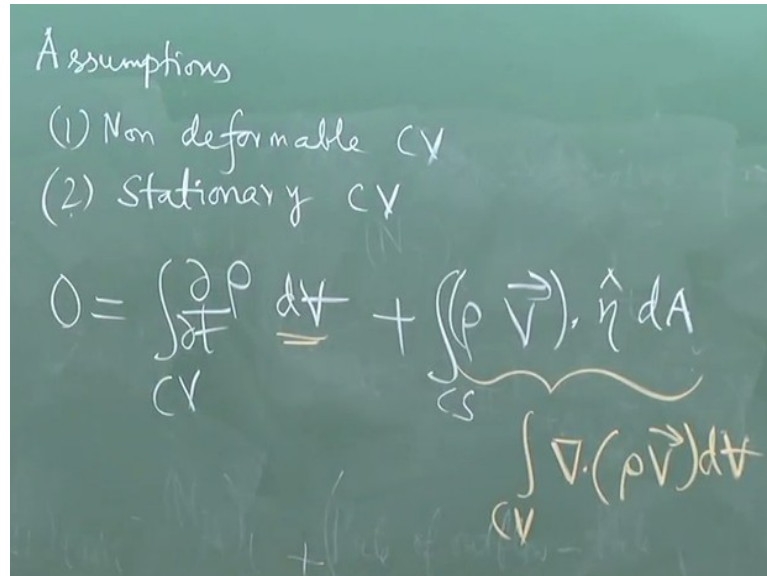 Assumptions
(1) Non deformable CV
(2) Stationary CV
0 = ∫ ∂ρ/∂t dV + ∫(ρ V⃗). η̂ dA
CV CS
∫ ∇·(ρV⃗)dV
CV